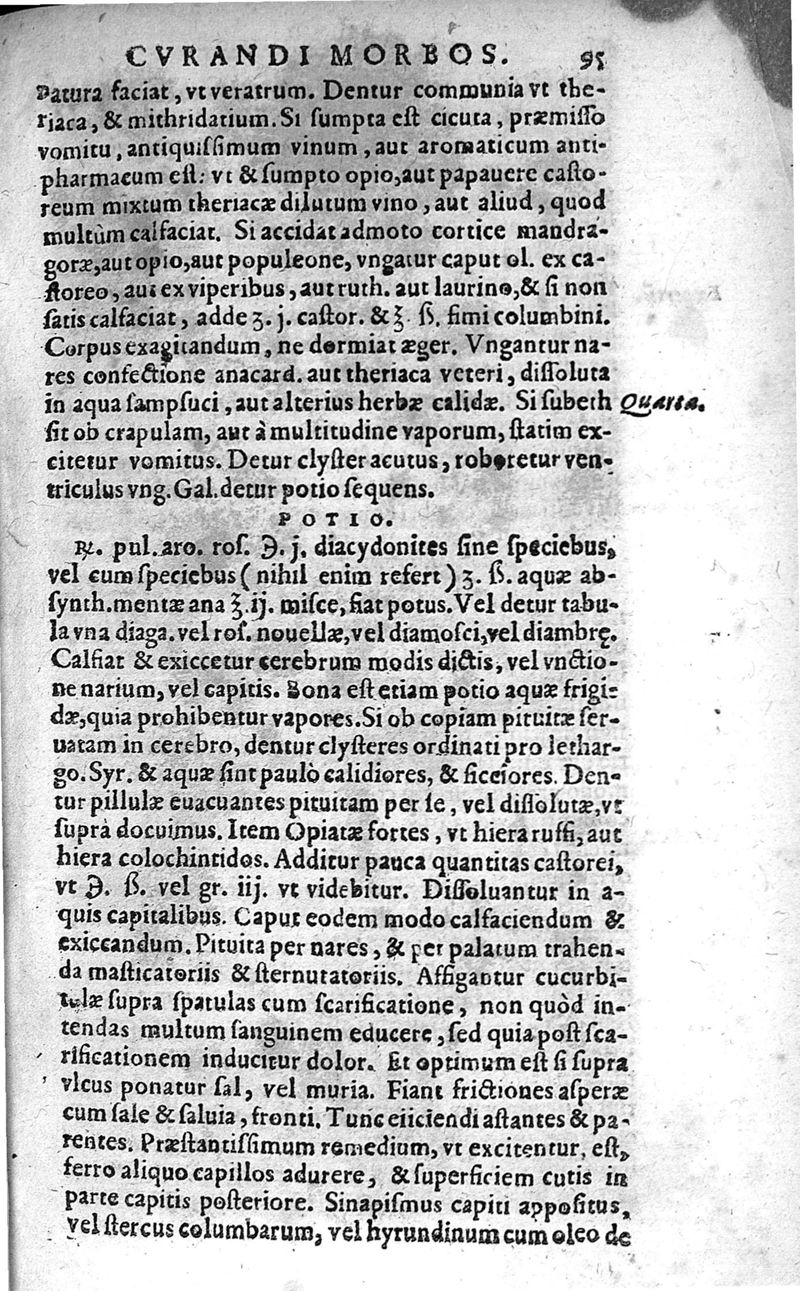 CVRANDI MORBOS. 95
natura faciat, vt veratrum. Dentur communia vt the-
riaca, & mithridatium. Si ſumpta eſt cicuta, præmiſſo
vomitu, antiquiſſimum vinum, aut aromaticum anti-
pharmacum eſt: vt & ſumpto opio, aut papauere caſto-
reum mixtum theriacæ dilutum vino, aut aliud, quod
multùm calfaciat. Si accidat admoto cortice mandra-
goræ, aut opio, aut populeone, vngatur caput ol. ex ca-
ſtoreo, aut ex viperibus, aut ruth. aut laurino, & ſi non
ſatis calfaciat, adde ʒ. j. caſtor. & ℥ ß. fimi columbini.
Corpus exagitandum, ne dormiat æger. Vngantur na-
res confectione anacard. aut theriaca veteri, diſſoluta
in aqua ſampſuci, aut alterius herbæ calidæ. Si ſubeth Quarta.
ſit ob crapulam, aut à multitudine vaporum, ſtatim ex-
citetur vomitus. Detur clyſter acutus, roboretur ven-
triculus vng. Gal. detur potio ſequens.
POTIO.
℞. pul. aro. roſ. ℈. j. diacydonites ſine ſpeciebus,
vel cum ſpeciebus (nihil enim refert) ʒ. ß. aquæ ab-
ſynth. mentæ ana ℥. ij. miſce, fiat potus. Vel detur tabu-
la vna diaga. vel roſ. nouellæ, vel diamoſci, vel diambrę.
Calfiat & exiccetur cerebrum modis dictis, vel vnctio-
ne narium, vel capitis. Bona eſt etiam potio aquæ frigi-
dæ, quia prohibentur vapores. Si ob copiam pituitæ ſer-
uatam in cerebro, dentur clyſteres ordinati pro lethar-
go. Syr. & aquæ ſint paulò calidiores, & ſicciores. Den-
tur pillulæ euacuantes pituitam per ſe, vel diſſolutæ, vt
ſuprà docuimus. Item Opiatæ fortes, vt hiera ruffi, aut
hiera colochintidos. Additur pauca quantitas caſtorei,
vt ℈. ß. vel gr. iij. vt videbitur. Diſſoluantur in a-
quis capitalibus. Caput eodem modo calfaciendum &
exiccandum. Pituita per nares, & per palatum trahen-
da maſticatoriis & ſternutatoriis. Affigantur cucurbi-
tulæ ſupra ſpatulas cum ſcarificatione, non quòd in-
tendas multum ſanguinem educere, ſed quia poſt ſca-
rificationem inducitur dolor. Et optimum eſt ſi ſupra
vlcus ponatur ſal, vel muria. Fiant frictiones aſperæ
cum ſale & ſaluia, fronti. Tunc eiiciendi aſtantes & pa-
rentes. Præſtantiſſimum remedium, vt excitentur, eſt,
ferro aliquo capillos adurere, & ſuperficiem cutis in
parte capitis poſteriore. Sinapiſmus capiti appoſitus,
vel ſtercus columbarum, vel hyrundinum cum oleo de